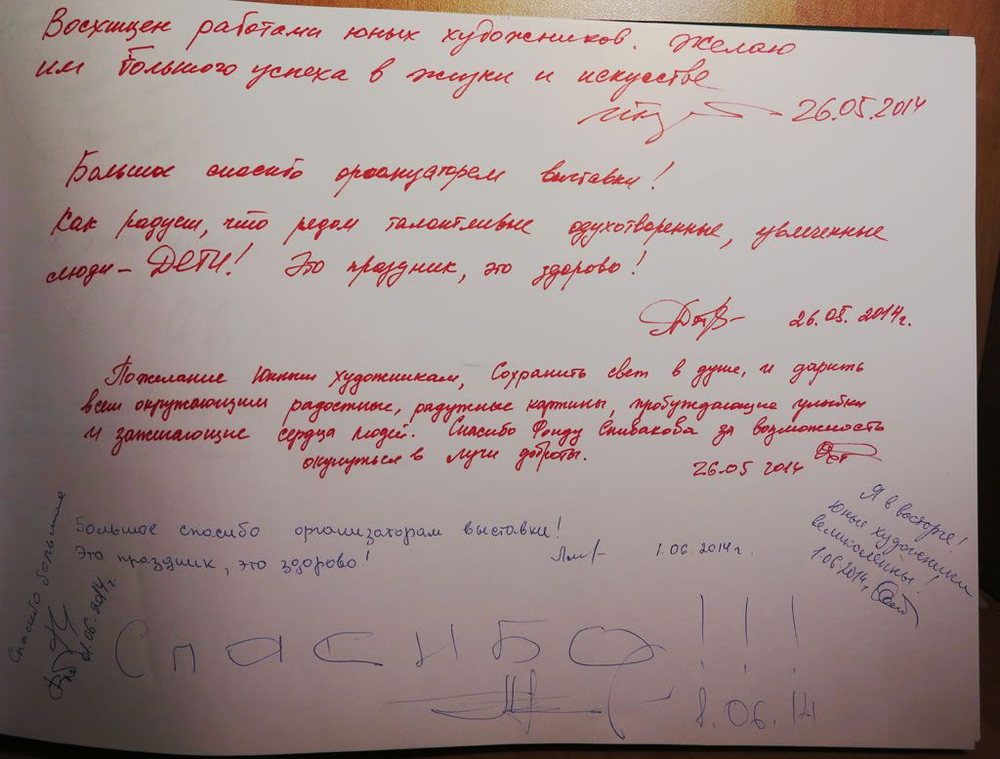 Восхищен работами юных художников. Желаю
им большого успеха в жизни и искусстве
26.05.2014
Большое спасибо организаторам выставки!
Как радует, что рядом талантливые одухотворенные, увлеченные
люди – ДЕТИ! Это праздник, это здорово!
26.05.2014г.
Пожелание Юным художникам, Сохранить свет в душе, и дарить
всем окружающим радостные, радужные картины, пробуждающие улыбки
и зажигающие сердца людей. Спасибо Фонду Спивакова за возможность
окунуться в лучи доброты.
26.05 2014
Большое спасибо организаторам выставки!
Это праздник, это здорово! 1.06.2014г.
Я в восторге!
Юные художники
великолепны!
1.06.2014г.
Спасибо большое
01.06.2014г.
СПАСИБО!!!
8.06.14